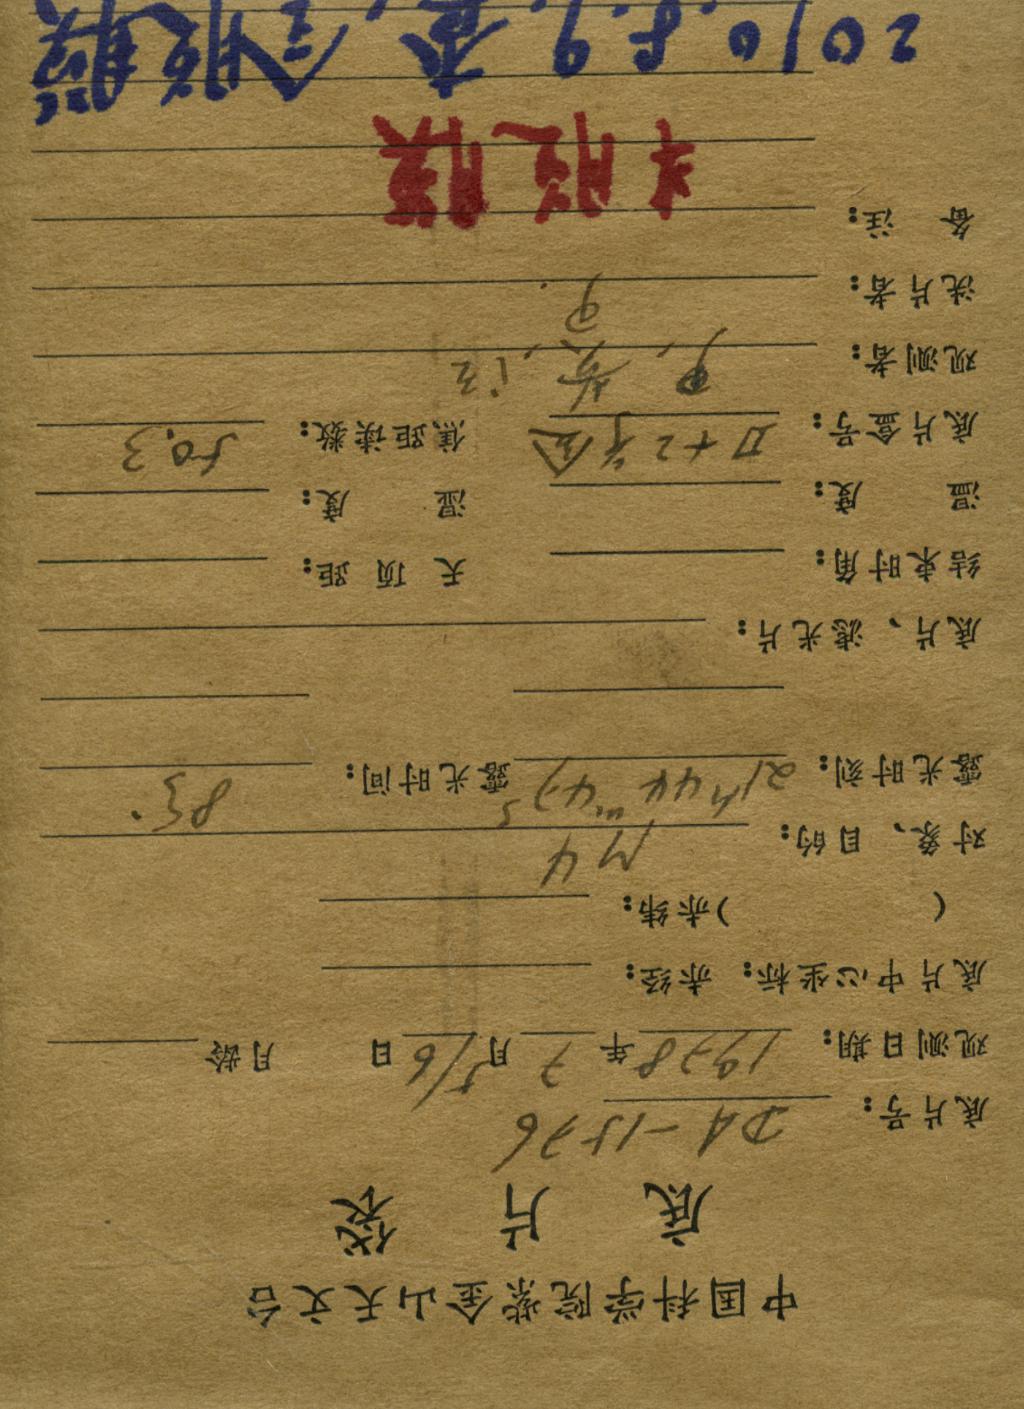 中国科学院紫金山天文台
底片袋
底片号: DA-1576
观测日期: 1978年7月5/6日 月龄
底片中心坐标: 赤经:
( )赤纬:
对象、目的: M4
露光时刻: 21h44m47s 露光时间: 85.
底片、滤光片:
结束时角: 天顶距:
温度: 湿度:
底片盒号: 焦距读数: 50.3
观测者:
洗片者:
备注:
半脱膜
2010.8.9.查,全脱膜